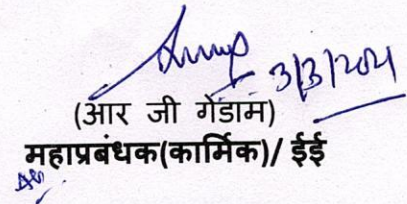 3/3/2021
(आर जी गेडाम)
महाप्रबंधक(कार्मिक)/ ईई